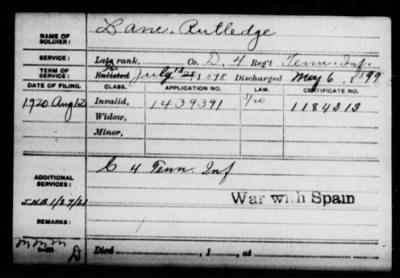 NAME OF SOLDIER: Lane, Rutledge
SERVICE: Late rank, Co. D, 4 Reg't Tenn. Inf.
TERM OF SERVICE: Enlisted July 1898 Discharged May 6, 1899
DATE OF FILING. CLASS. APPLICATION NO. LAW. CERTIFICATE NO.
1920 Aug 12 Invalid, 1439391 1184313
Widow,
Minor,
C 4 Tenn Inf
ADDITIONAL SERVICES:
War with Spain
REMARKS:
Died , 1 , at